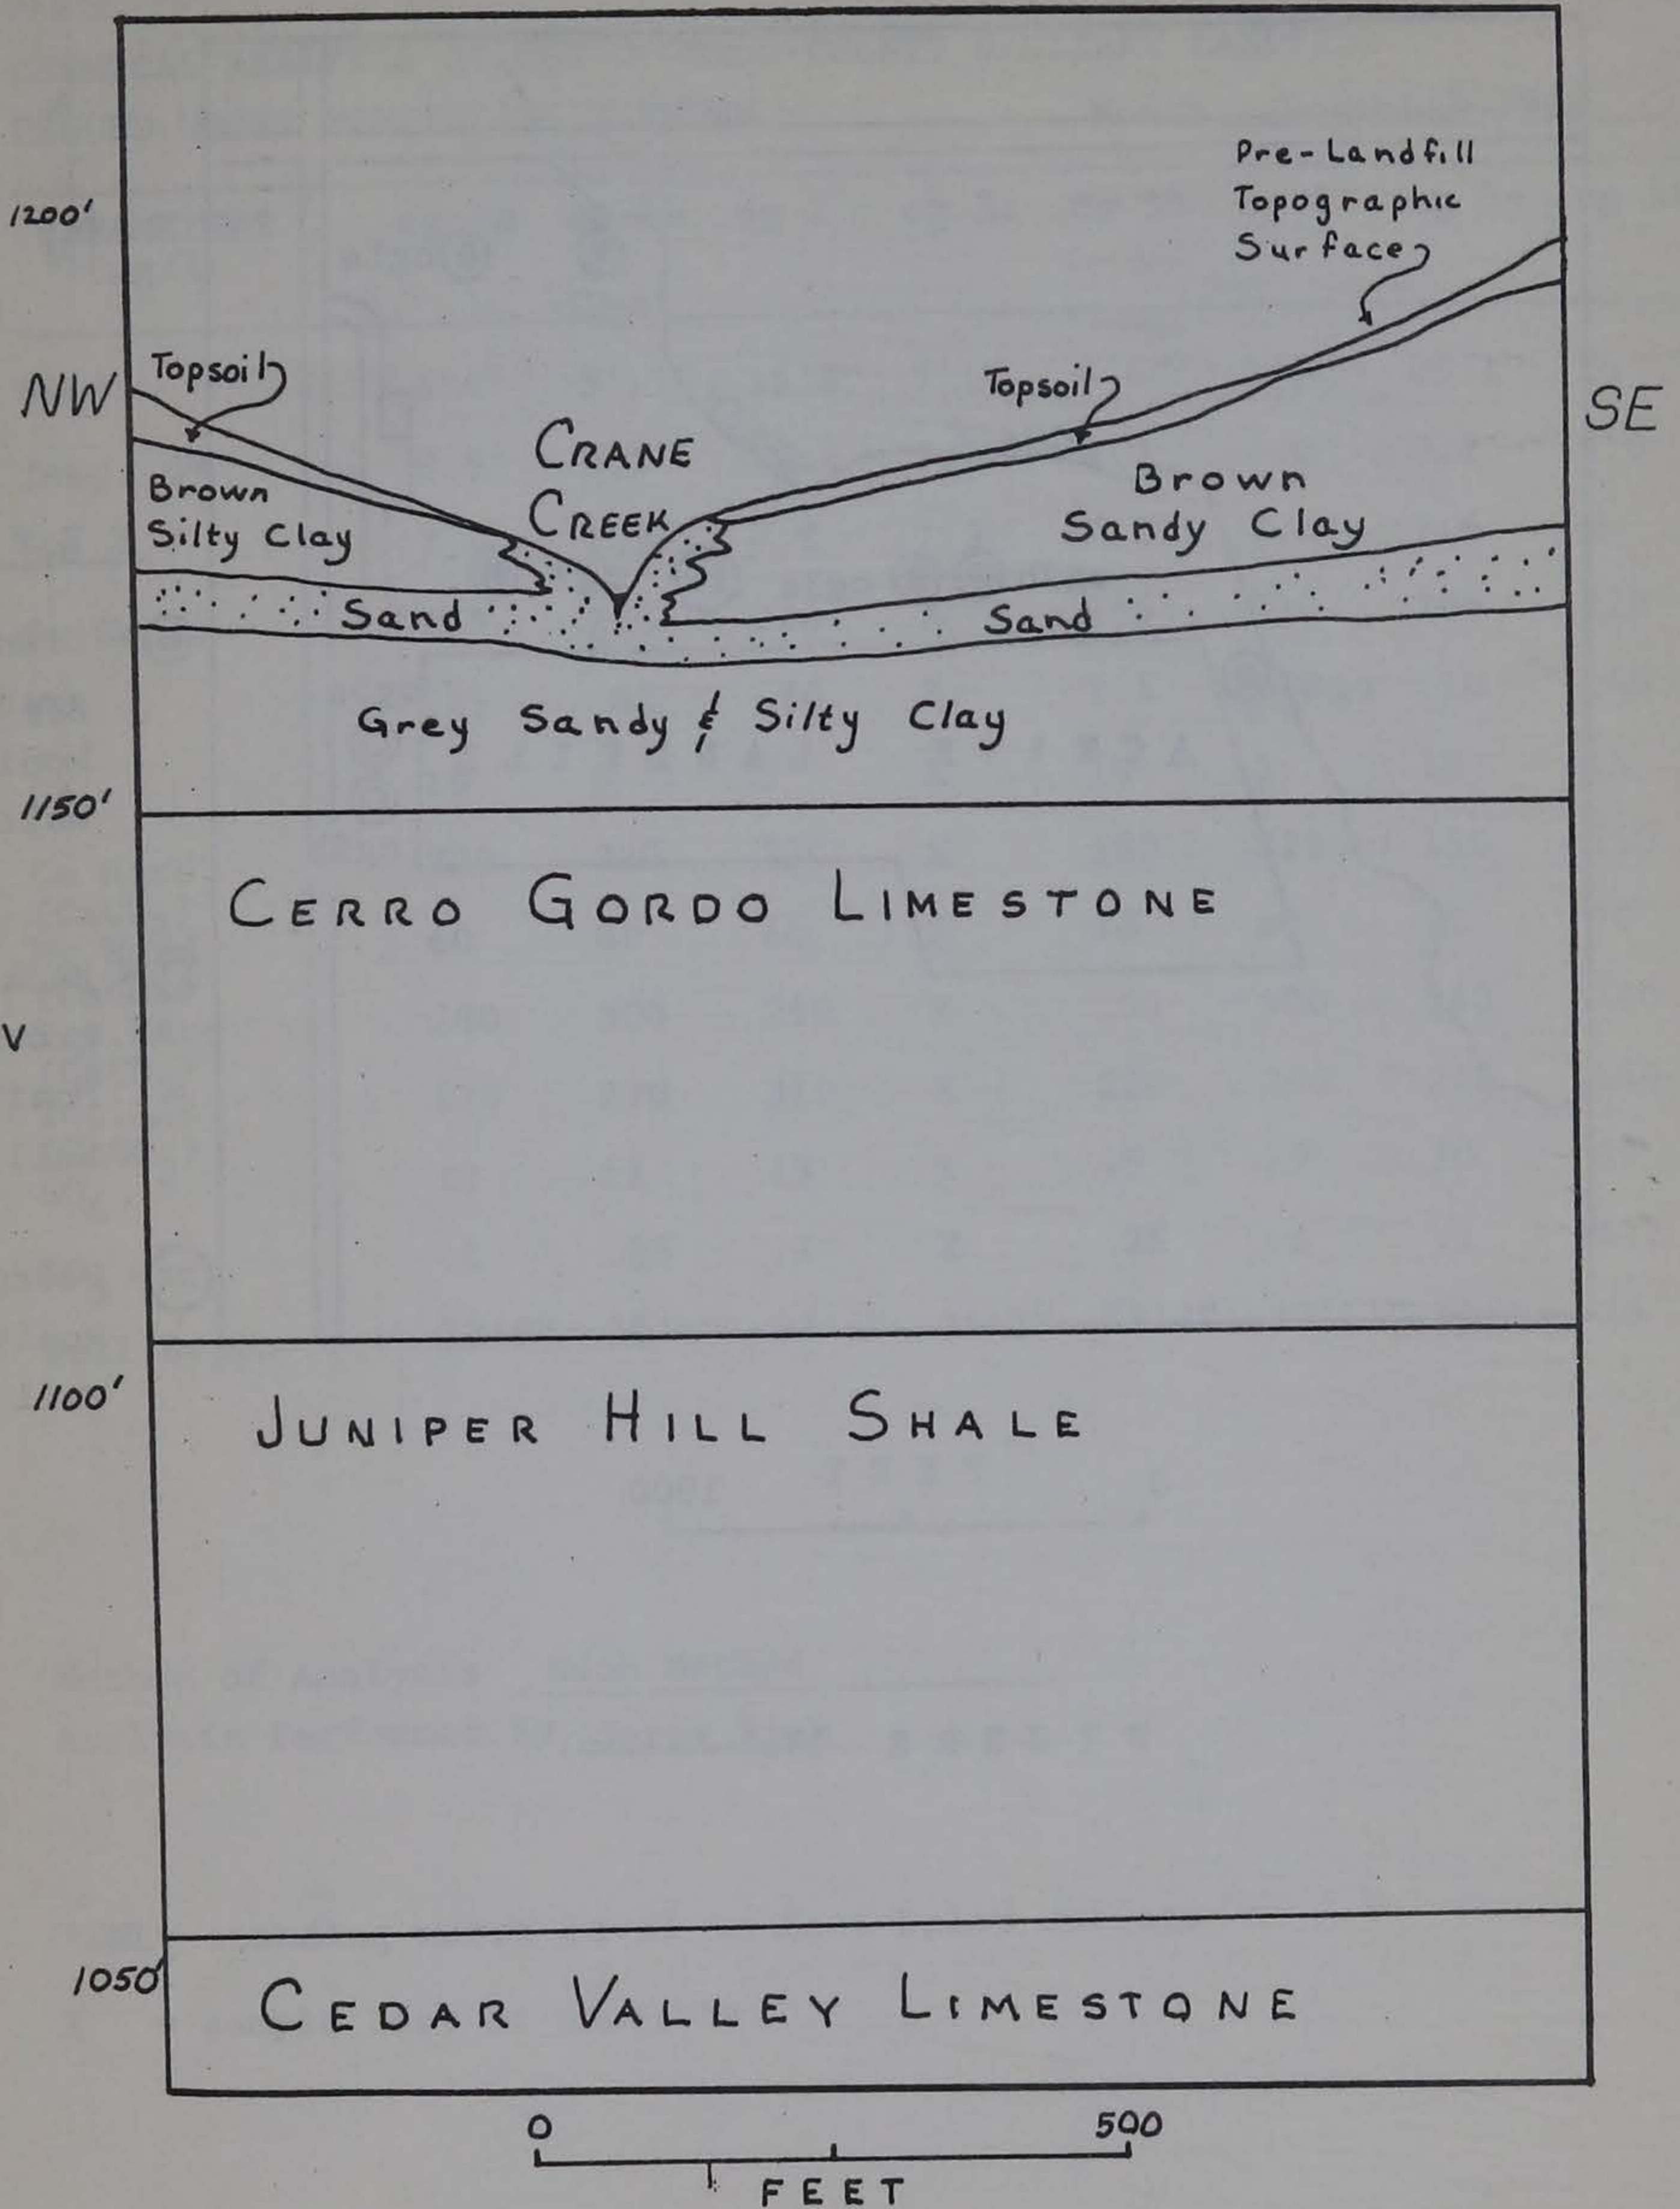 Pre-Landfill
Topographic
Surface
1200'
NW
Topsoil
Topsoil
SE
CRANE
CREEK
Brown
Silty Clay
Brown
Sandy Clay
Sand
Sand
Grey Sandy & Silty Clay
1150'
CERRO GORDO LIMESTONE
V
1100'
JUNIPER HILL SHALE
1050'
CEDAR VALLEY LIMESTONE
0 500
FEET